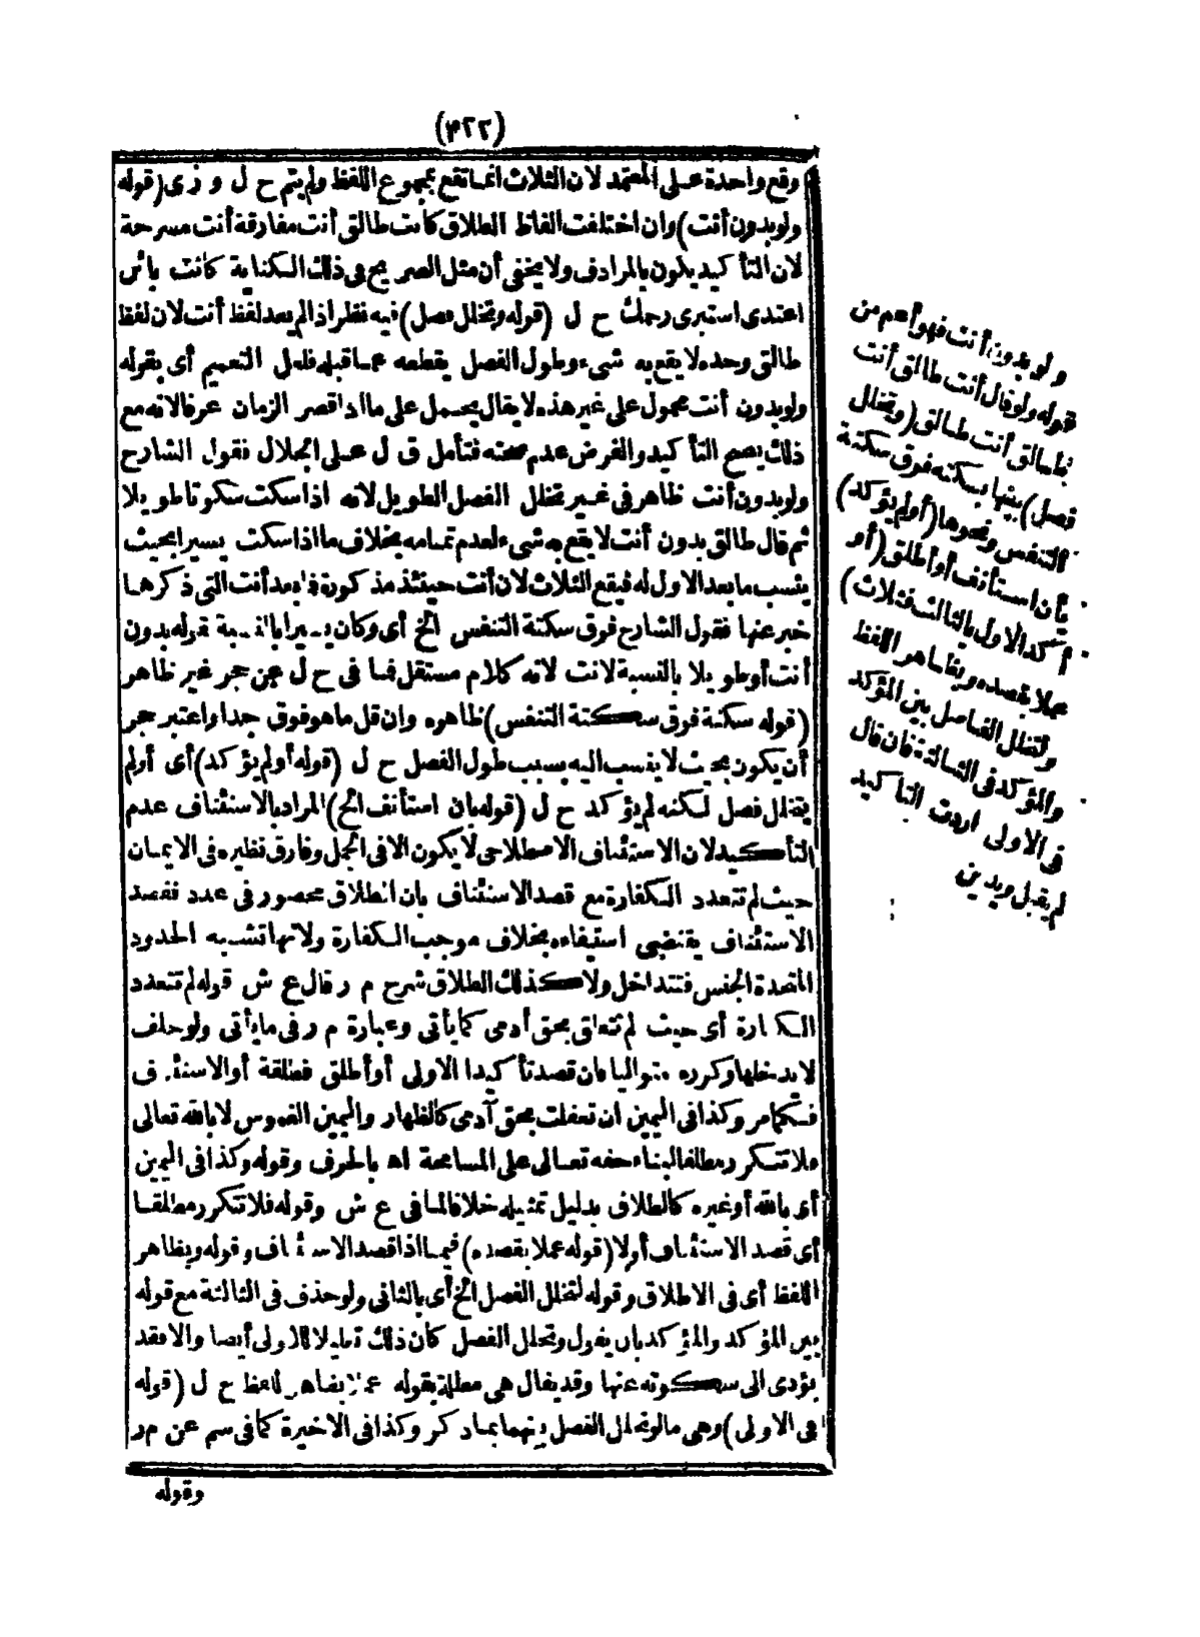 (٤٢٢)
وقع واحدة على المعتمد لان الثلاث انما تقع بمجموع اللفظ ولم يتم ح ل و ز ى (قوله
ولو بدون أنت) وان اختلفت الفاظ الطلاق كانت طالق أنت مفارقة أنت مسرحة
لان التأكيد يكون بالمرادف ولا يخفى أن مثل الصريح فى ذلك الكناية كانت بائن
اعتدى استبرى رحمك ح ل (قوله وتخلل فصل) فيه نظر اذا لم يعد لفظ أنت لان لفظ
طالق وحده لا يقع به شىء وطول الفصل يقطعه عما قبله فلعل التعميم أى بقوله
ولو بدون أنت محمول على غير هذه لا يقال يحمل على ما اذا قصر الزمان عرفا لانه مع
ذلك يصح التأكيد والفرض عدم صحته فتأمل ق ل على الجلال نقول الشارح
ولو بدون أنت ظاهر فى غير تخلل الفصل الطويل لانه اذا سكت سكوتا طويلا
ثم قال طالق بدون أنت لا يقع به شىء لعدم تمامه بخلاف ما اذا سكت يسيرا بحيث
ينسب ما بعد الاول له فيقع الثلاث لان أنت حينئذ مذكورة فما بعد أنت التى ذكرها
خبر عنها فقول الشارح فوق سكتة التنفس الخ أى وكان يسيرا بالنسبة لقوله بدون
أنت أو طويلا بالنسبة لانت لانه كلام مستقل فما فى ح ل عن حجر غير ظاهر
(قوله سكتة فوق سكتة التنفس) ظاهره وان قل ما هو فوق جدا واعتبر حجر
أن يكون بحيث لا ينسب اليه بسبب طول الفصل ح ل (قوله أو لم يؤكد) أى أو لم
يتخلل فصل لكنه لم يؤكد ح ل (قوله بان استأنف الخ) المراد بالاستئناف عدم
التأكيد لان الاستئناف الاصطلاحى لا يكون الا فى الجمل وفارق نظيره فى الايمان
حيث لم تتعدد الكفارة مع قصد الاستئناف بان الطلاق محصور فى عدد فقصد
الاستئناف يقتضى استيفاءه بخلاف موجب الكفارة ولانها تشبه الحدود
المتحدة الجنس فتتداخل ولا كذلك الطلاق شرح م ر قال ع ش قوله لم تتعدد
الكفارة أى حيث لم تتعلق بحق آدمى كما يأتى وعبارة م ر فى ما يأتى ولو حلف
لا يدخلها وكرره متواليا فان قصد تأكيدا الاولى أو أطلق فطلقة أو الاستئناف
فكما مر وكذا فى اليمين ان تعلقت بحق آدمى كالظهار واليمين الغموس لا بالله تعالى
فلا تتكرر مطلقا لبناء حقه تعالى على المسامحة اه بالحرف وقوله وكذا فى اليمين
أى بالله أو غيره كالطلاق بدليل تمثيله خلافا لما فى ع ش وقوله فلا تتكرر مطلقا
أى قصد الاستئناف أولا (قوله عملا بقصده) فيما اذا قصد الاستئناف وقوله وبظاهر
اللفظ أى فى الاطلاق وقوله لتخلل الفصل الخ أى بالثانى ولو حذف فى الثالثة مع قوله
بين المؤكد والمؤكد بان يقول وتخلل الفصل كان ذلك تعليلا للاولى أيضا والا فقد
يؤدى الى سكوته عنها وقد يقال هى معللة بقوله عملا بظاهر اللفظ ح ل (قوله
فى الاولى) وهى ما لو تخلل الفصل بينهما بما ذكر وكذا فى الاخيرة كما فى سم عن م ر
وقوله
ولو بدون أنت فهو أعم من
قوله ولو قال أنت طالق أنت
طالق أنت طالق (وتخلل
فصل) بينها بسكتة فوق سكتة
التنفس ونحوها (أو لم يؤكد)
بأن استأنف أو أطلق (أو
أكد الاول بالثالث فثلاث)
عملا بقصده وبظاهر اللفظ
ولتخلل الفاصل بين المؤكد
والمؤكد فى الثالثة فان قال
فى الاولى اردت التاكيد
لم يقبل ويدين